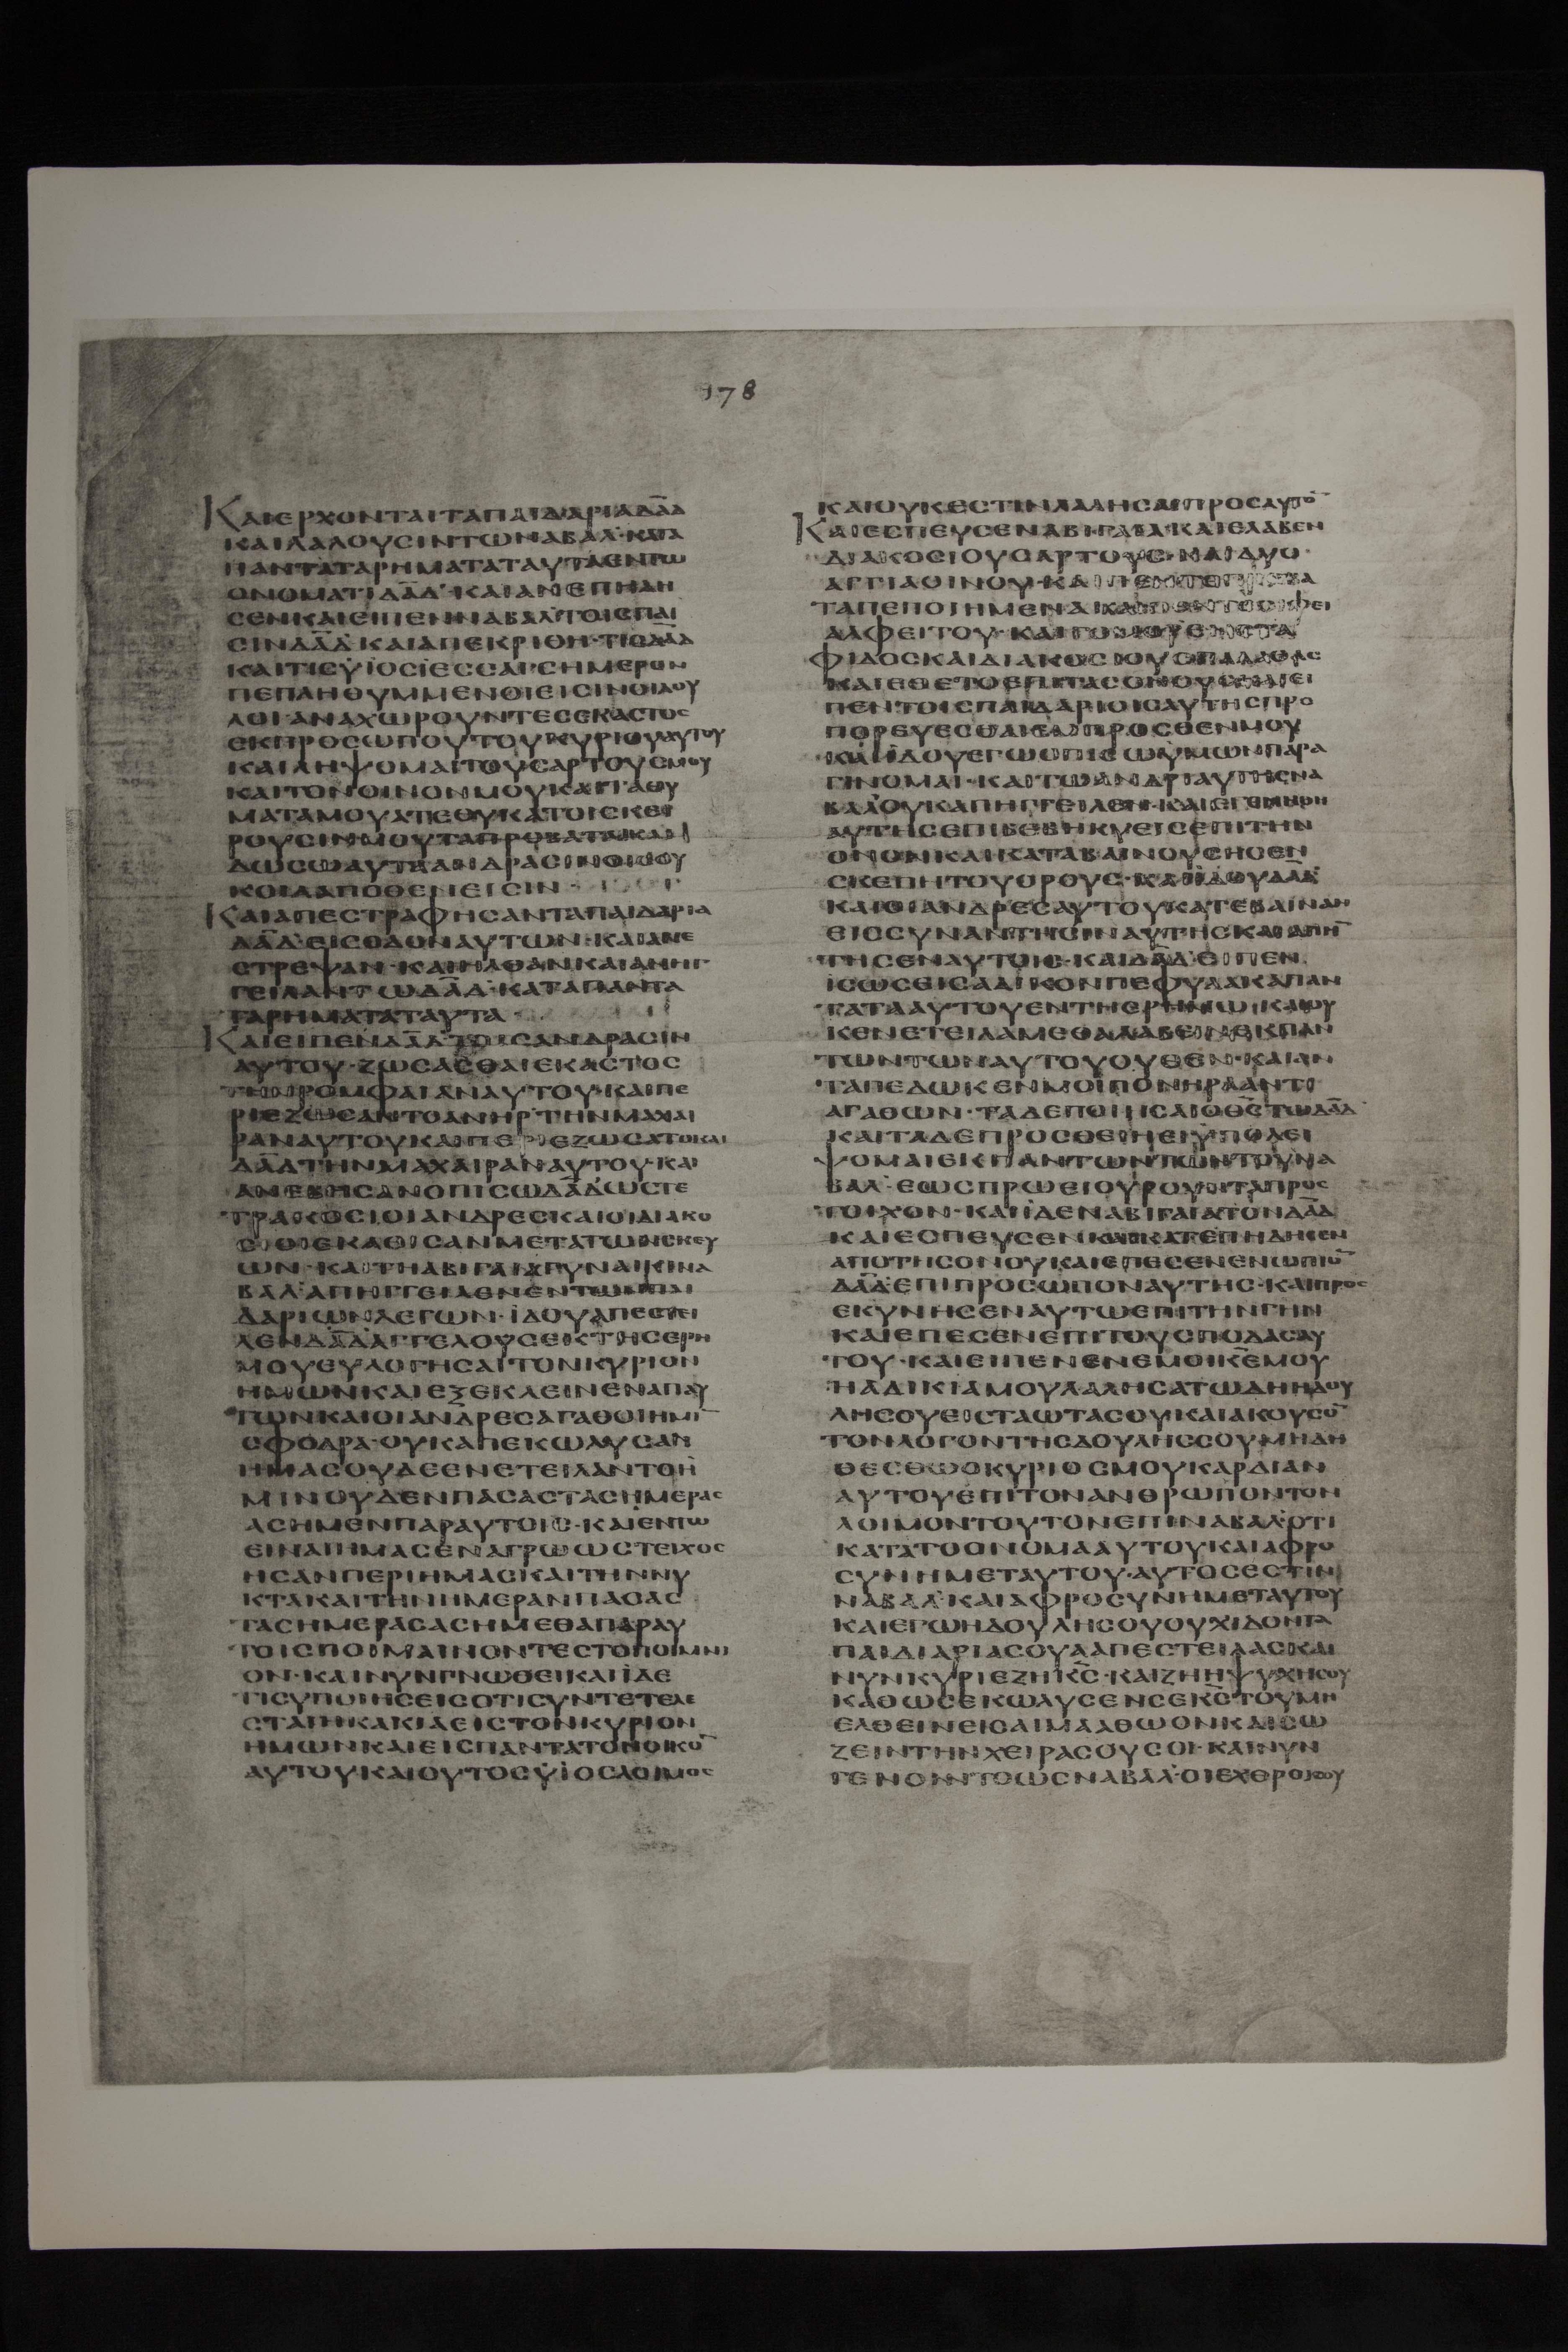 978
ΚΑΙΕΡΧΟΝΤΑΙΤΑΠΑΙΔΑΡΙΑΔΑΔ
ΚΑΙΛΑΛΟΥΣΙΝΤΩΝΑΒΑΛ·ΚΑΤΑ
ΠΑΝΤΑΤΑΡΗΜΑΤΑΤΑΥΤΑΕΝΤΩ
ΟΝΟΜΑΤΙΔΑΔ·ΚΑΙΑΝΕΠΗΔΗ
ΣΕΝΚΑΙΕΙΠΕΝΝΑΒΑΛΤΟΙΣΠΑΙ
ΣΙΝΔΑΔ ΚΑΙΑΠΕΚΡΙΘΗ·ΤΙΟΔΑΔ
ΚΑΙΤΙΣΫΙΟΣΪΕΣΣΑΙ·ΣΗΜΕΡΟΝ
ΠΕΠΛΗΘΥΜΜΕΝΟΙΕΙΣΙΝΟΙΔΟΥ
ΛΟΙ·ΑΝΑΧΩΡΟΥΝΤΕΣΕΚΑΣΤΟΣ
ΕΚΠΡΟΣΩΠΟΥΤΟΥΚΥΡΙΟΥΑΥΤΟΥ
ΚΑΙΛΗΨΟΜΑΙΤΟΥΣΑΡΤΟΥΣΜΟΥ
ΚΑΙΤΟΝΟΙΝΟΝΜΟΥΚΑΙΤΑΘΥ
ΜΑΤΑΜΟΥΑΤΕΘΥΚΑΤΟΙΣΚΕΙ
ΡΟΥΣΙΝΜΟΥΤΑΠΡΟΒΑΤΑΚΑΙ
ΔΩΣΩΑΥΤΑΑΝΔΡΑΣΙΝΟΙΣΟΥ
ΚΟΙΔΑΠΟΘΕΝΕΙΣΙΝ
ΚΑΙΑΠΕΣΤΡΑΦΗΣΑΝΤΑΠΑΙΔΑΡΙΑ
ΔΑΔ·ΕΙΣΟΔΟΝΑΥΤΩΝ·ΚΑΙΑΝΕ
ΣΤΡΕΨΑΝ·ΚΑΙΗΛΘΑΝΚΑΙΑΝΗΓ
ΓΕΙΛΑΝΤΩΔΑΔ·ΚΑΤΑΠΑΝΤΑ
ΤΑΡΗΜΑΤΑΤΑΥΤΑ
ΚΑΙΕΙΠΕΝΔΑΔΤΟΙΣΑΝΔΡΑΣΙΝ
ΑΥΤΟΥ·ΖΩΣΑΣΘΑΙΕΚΑΣΤΟΣ
ΤΗΝΡΟΜΦΑΙΑΝΑΥΤΟΥ·ΚΑΙΠΕ
ΡΙΕΖΩΣΑΝΤΟΑΝΗΡΤΗΝΜΑΧΑΙ
ΡΑΝΑΥΤΟΥΚΑΙΠΕΡΙΕΖΩΣΑΤΟΚΑΙ
ΔΑΔΤΗΝΜΑΧΑΙΡΑΝΑΥΤΟΥ·ΚΑΙ
ΑΝΕΒΗΣΑΝΟΠΙΣΩΔΑΔΩΣΤΕ
ΤΡΑΚΟΣΙΟΙΑΝΔΡΕΣΚΑΙΟΙΔΙΑΚΟ
ΣΙΟΙΕΚΑΘΙΣΑΝΜΕΤΑΤΩΝΣΚΕΥ
ΩΝ·ΚΑΙΤΗΑΒΙΓΑΙΑΓΥΝΑΙΚΙΝΑ
ΒΑΛ·ΑΠΗΓΓΕΙΛΕΝΕΝΤΩΝΠΑΙ
ΔΑΡΙΩΝΛΕΓΩΝ·ΪΔΟΥΑΠΕΣΤΕΙ
ΛΕΝΔΑΔΑΓΓΕΛΟΥΣΕΚΤΗΣΕΡΗ
ΜΟΥΕΥΛΟΓΗΣΑΙΤΟΝΚΥΡΙΟΝ
ΗΜΩΝΚΑΙΕΞΕΚΛΕΙΝΕΝΑΠΑΥ
ΤΩΝΚΑΙΟΙΑΝΔΡΕΣΑΓΑΘΟΙΗΜΙ
ΣΦΟΔΡΑ·ΟΥΚΑΠΕΚΩΛΥΣΑΝ
ΗΜΑΣΟΥΔΕΕΝΕΤΕΙΛΑΝΤΟΗ
ΜΙΝΟΥΔΕΝΠΑΣΑΣΤΑΣΗΜΕΡΑΣ
ΑΣΗΜΕΝΠΑΡΑΥΤΟΙΣ·ΚΑΙΕΝΤΩ
ΕΙΝΑΙΗΜΑΣΕΝΑΓΡΩΩΣΤΕΙΧΟΣ
ΗΣΑΝΠΕΡΙΗΜΑΣΚΑΙΤΗΝΝΥ
ΚΤΑΚΑΙΤΗΝΗΜΕΡΑΝΠΑΣΑΣ
ΤΑΣΗΜΕΡΑΣΑΣΗΜΕΘΑΠΑΡΑΥ
ΤΟΙΣΠΟΙΜΑΙΝΟΝΤΕΣΤΟΠΟΙΜΝΙ
ΟΝ·ΚΑΙΝΥΝΓΝΩΘΕΙΚΑΙΪΔΕ
ΤΙΣΥΠΟΙΗΣΕΙΣΟΤΙΣΥΝΤΕΤΕΛΕ
ΣΤΑΙΗΚΑΚΙΑΕΙΣΤΟΝΚΥΡΙΟΝ
ΗΜΩΝΚΑΙΕΙΣΠΑΝΤΑΤΟΝΟΙΚΟ
ΑΥΤΟΥΚΑΙΟΥΤΟΣΫΙΟΣΛΟΙΜΟΣ
ΚΑΙΟΥΚΕΣΤΙΝΛΑΛΗΣΑΙΠΡΟΣΑΥΤΟ
ΚΑΙΕΣΠΕΥΣΕΝΑΒΙΓΑΙΑ·ΚΑΙΕΛΑΒΕΝ
ΔΙΑΚΟΣΙΟΥΣΑΡΤΟΥΣ·ΚΑΙΔΥΟ
ΑΓΓΙΑΟΙΝΟΥ·ΚΑΙΠΕΝΤΕΠΡΟΒΑ
ΤΑΠΕΠΟΙΗΜΕΝΑ
ΑΛΦΕΙΤΟΥ·ΚΑΙ
ΦΙΔΟΣΚΑΙΔΙΑΚΟΣΙΟΥΣΠΑΛΑΘΑΣ
ΚΑΙΕΘΕΤΟΕΠΙΤΑΣΟΝΟΥΣΚΑΙΕΙ
ΠΕΝΤΟΙΣΠΑΙΔΑΡΙΟΙΣΑΥΤΗΣΠΡΟ
ΠΟΡΕΥΕΣΘΑΙΕΜΠΡΟΣΘΕΝΜΟΥ
ΚΑΙΪΔΟΥΕΓΩΟΠΙΣΩΫΜΩΝΠΑΡΑ
ΓΙΝΟΜΑΙ·ΚΑΙΤΩΑΝΔΡΙΑΥΤΗΣΝΑ
ΒΑΛΟΥΚΑΠΗΓΓΕΙΛΕΝ·ΚΑΙΕΓΕΝΗΘΗ
ΑΥΤΗΣΕΠΙΒΕΒΗΚΥΕΙΣΕΠΙΤΗΝ
ΟΝΟΝΚΑΙΚΑΤΑΒΑΙΝΟΥΣΗΣΕΝ
ΣΚΕΠΗΤΟΥΟΡΟΥΣ·ΚΑΙΪΔΟΥΔΑΔ
ΚΑΙΟΙΑΝΔΡΕΣΑΥΤΟΥΚΑΤΕΒΑΙΝΑΝ
ΕΙΣΣΥΝΑΝΤΗΣΙΝΑΥΤΗΣΚΑΙΑΠΗ
ΤΗΣΕΝΑΥΤΟΙΣ·ΚΑΙΔΑΔ·ΕΙΠΕΝ
ΙΣΩΣΕΙΣΑΔΙΚΟΝΠΕΦΥΛΑΚΑΠΑΝ
ΤΑΤΑΑΥΤΟΥΕΝΤΗΕΡΗΜΩΚΑΙΟΥ
ΚΕΝΕΤΕΙΛΑΜΕΘΑΛΑΒΕΙΝΕΚΠΑΝ
ΤΩΝΤΩΝΑΥΤΟΥΟΥΘΕΝ·ΚΑΙΑΝ
ΤΑΠΕΔΩΚΕΝΜΟΙΠΟΝΗΡΑΑΝΤΙ
ΑΓΑΘΩΝ·ΤΑΔΕΠΟΙΗΣΑΙΟΘΣΤΩΔΑΔ
ΚΑΙΤΑΔΕΠΡΟΣΘΕΙΗΕΙΫΠΟΛΕΙ
ΨΟΜΑΙΕΚΠΑΝΤΩΝΤΩΝΤΟΥΝΑ
ΒΑΛ·ΕΩΣΠΡΩΕΙΟΥΡΟΥΝΤΑΠΡΟΣ
ΤΟΙΧΟΝ·ΚΑΙΪΔΕΝΑΒΙΓΑΙΑΤΟΝΔΑΔ
ΚΑΙΕΣΠΕΥΣΕΝΚΑΙΚΑΤΕΠΗΔΗΣΕΝ
ΑΠΟΤΗΣΟΝΟΥΚΑΙΕΠΕΣΕΝΕΝΩΠΙΟ
ΔΑΔ·ΕΠΙΠΡΟΣΩΠΟΝΑΥΤΗΣ·ΚΑΙΠΡΟΣ
ΕΚΥΝΗΣΕΝΑΥΤΩΕΠΙΤΗΝΓΗΝ
ΚΑΙΕΠΕΣΕΝΕΠΙΤΟΥΣΠΟΔΑΣΑΥ
ΤΟΥ·ΚΑΙΕΙΠΕΝΕΝΕΜΟΙΚΕΜΟΥ
ΗΑΔΙΚΙΑΜΟΥΛΑΛΗΣΑΤΩΔΗΗΔΟΥ
ΛΗΣΟΥΕΙΣΤΑΩΤΑΣΟΥΚΑΙΑΚΟΥΣΟ
ΤΟΝΛΟΓΟΝΤΗΣΔΟΥΛΗΣΣΟΥΜΗΔΗ
ΘΕΣΘΩΟΚΥΡΙΟΣΜΟΥΚΑΡΔΙΑΝ
ΑΥΤΟΥΕΠΙΤΟΝΑΝΘΡΩΠΟΝΤΟΝ
ΛΟΙΜΟΝΤΟΥΤΟΝΕΠΙΝΑΒΑΛ·ΟΤΙ
ΚΑΤΑΤΟΟΝΟΜΑΑΥΤΟΥΚΑΙΑΦΡΟ
ΣΥΝΗΜΕΤΑΥΤΟΥ·ΑΥΤΟΣΕΣΤΙΝ
ΝΑΒΑΛ·ΚΑΙΑΦΡΟΣΥΝΗΜΕΤΑΥΤΟΥ
ΚΑΙΕΓΩΗΔΟΥΛΗΣΟΥΟΥΧΙΔΟΝΤΑ
ΠΑΙΔΙΑΡΙΑΣΟΥΑΑΠΕΣΤΕΙΛΑΣΚΑΙ
ΝΥΝΚΥΡΙΕΖΗΚΣ·ΚΑΙΖΗΗΨΥΧΗΣΟΥ
ΚΑΘΩΣΕΚΩΛΥΣΕΝΣΕΚΣΤΟΥΜΗ
ΕΛΘΕΙΝΕΙΣΑΙΜΑΑΘΩΟΝΚΑΙΣΩ
ΖΕΙΝΤΗΝΧΕΙΡΑΣΟΥΣΟΙ·ΚΑΙΝΥΝ
ΓΕΝΟΙΝΤΟΩΣΝΑΒΑΛ·ΟΙΕΧΘΡΟΙΣΟΥ